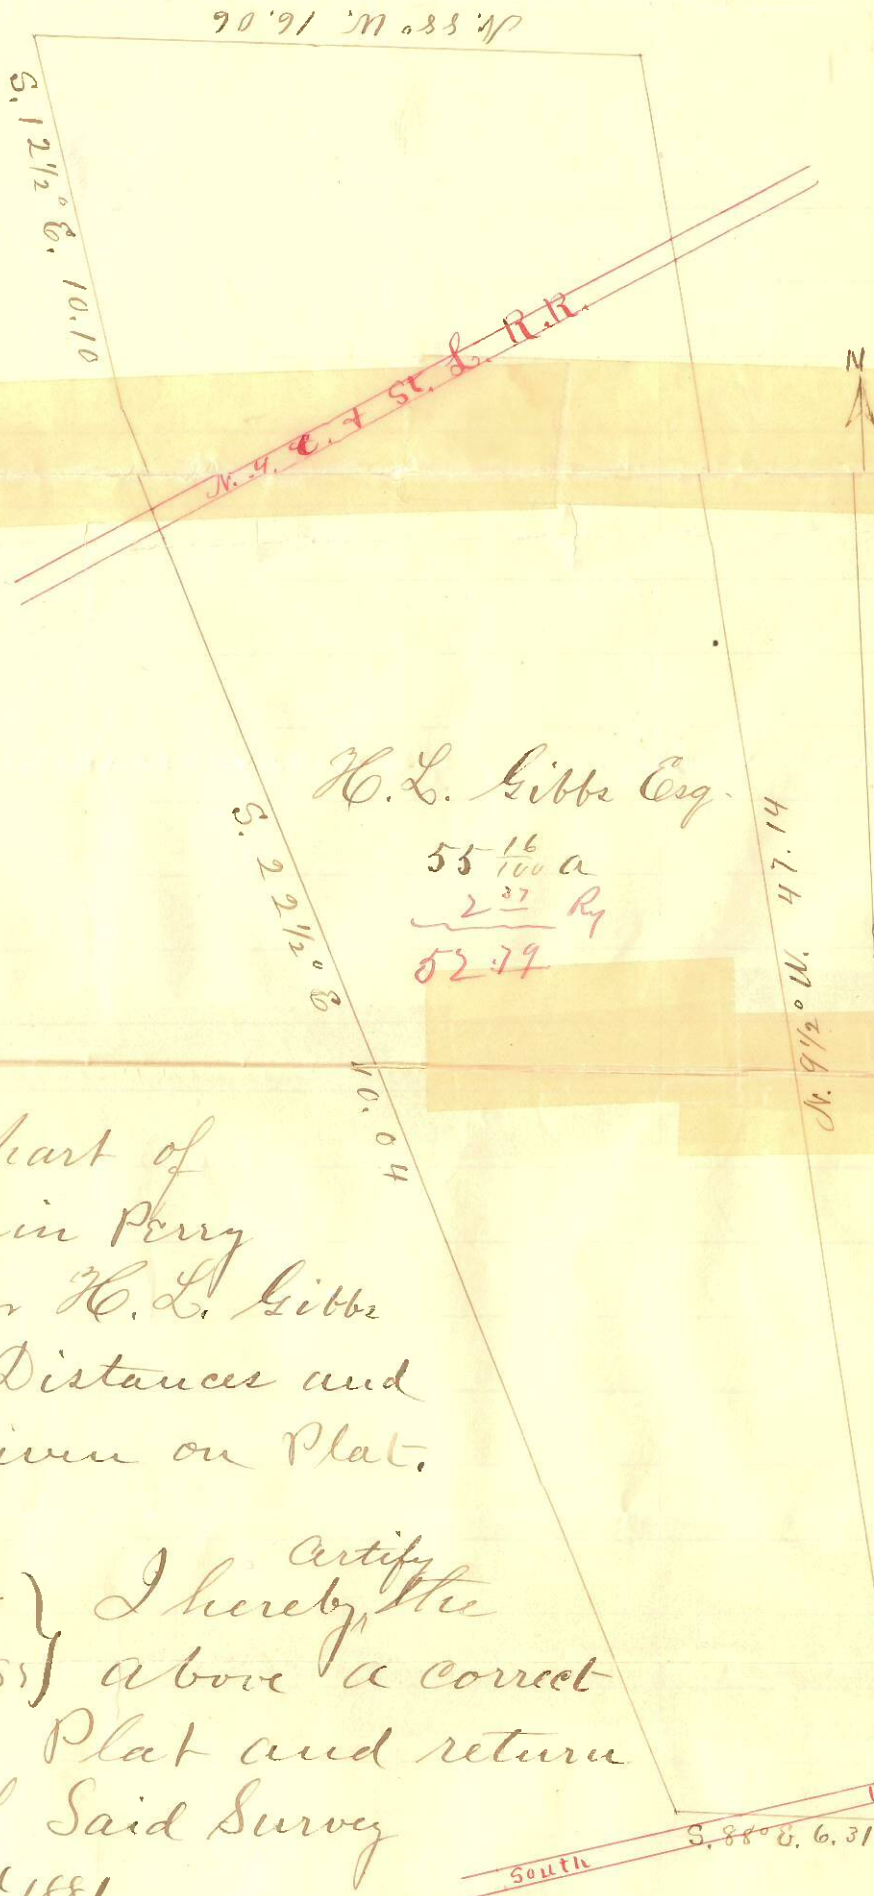 N. 88° W. 16.06
S. 12 1/2° E. 10.10
N. Y. C. & St. L. R.R.
N
H. L. Gibbs Esq.
55 16/100 a
2 37 Ry
52.79
S. 22 1/2° E 40.04
N. 9 1/2° W. 47.14
of
in Perry
H. L. Gibbs
Distances and
on Plat.
Certify
I hereby ^ the
above a correct
Plat and return
Said Survey
1881
S. 88° E. 6.31
South